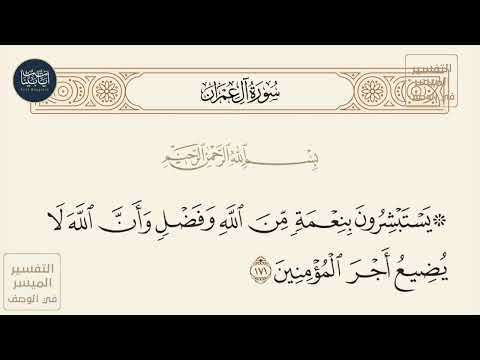 التفسير
الميسر
في الوصف
سُورَةُ آلِ عِمْرَان
بِسْمِ اللَّهِ الرَّحْمَٰنِ الرَّحِيمِ
۞ يَسْتَبْشِرُونَ بِنِعْمَةٍ مِّنَ ٱللَّهِ وَفَضْلٍ وَأَنَّ ٱللَّهَ لَا
يُضِيعُ أَجْرَ ٱلْمُؤْمِنِينَ ١٧١
التفسير
الميسر
في الوصف